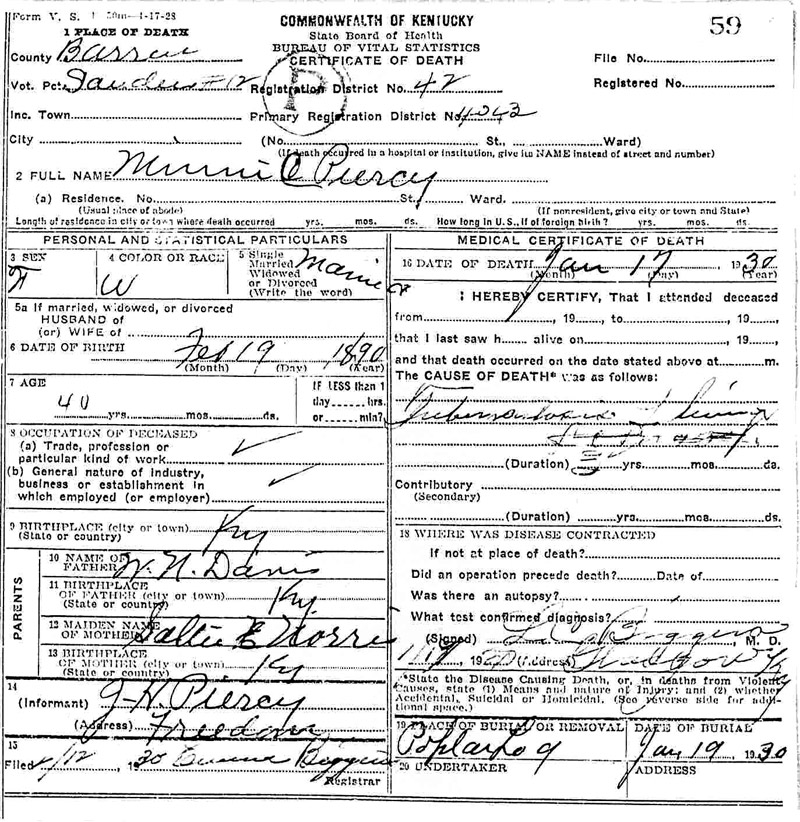 Form V. S. 1 50m-4-17-28
COMMONWEALTH OF KENTUCKY
59
1 PLACE OF DEATH
State Board of Health
BUREAU OF VITAL STATISTICS
County Barren
CERTIFICATE OF DEATH
File No.
Vot. Pct.
Registration District No. 42
Registered No.
Inc. Town
Primary Registration District No. 4043
City (No. St., Ward)
(If death occurred in a hospital or institution, give its NAME instead of street and number)
2 FULL NAME Minnie O Piercy
(a) Residence. No. St., Ward.
(Usual place of abode) (If nonresident, give city or town and State)
Length of residence in city or town where death occurred yrs. mos. ds. How long in U.S., if of foreign birth? yrs. mos. ds.
PERSONAL AND STATISTICAL PARTICULARS
3 SEX 4 COLOR OR RACE 5 Single Married Widowed or Divorced (Write the word)
F W Married
5a If married, widowed, or divorced
HUSBAND of
(or) WIFE of
6 DATE OF BIRTH Feb 19 1890
(Month) (Day) (Year)
7 AGE IF LESS than 1
day hrs.
40 yrs. mos. ds. or min?
8 OCCUPATION OF DECEASED
(a) Trade, profession or
particular kind of work ✓
(b) General nature of industry,
business or establishment in ✓
which employed (or employer)
9 BIRTHPLACE (city or town) Ky
(State or country)
PARENTS
10 NAME OF FATHER W. N. Davis
11 BIRTHPLACE
OF FATHER (city or town) Ky.
(State or country)
12 MAIDEN NAME
OF MOTHER Sallie E Norris
13 BIRTHPLACE
OF MOTHER (city or town) Ky
(State or country)
14
(Informant) J. H. Piercy
(Address) Freedom
15
Filed 2/12 1930 Biggers
Registrar
MEDICAL CERTIFICATE OF DEATH
16 DATE OF DEATH Jan 17 1930
(Month) (Day) (Year)
I HEREBY CERTIFY, That I attended deceased
from , 19 , to , 19 ,
that I last saw h alive on , 19 ,
and that death occurred on the date stated above at m.
The CAUSE OF DEATH* was as follows:
Tuberculosis
(Duration) yrs. mos. ds.
Contributory
(Secondary)
(Duration) yrs. mos. ds.
18 WHERE WAS DISEASE CONTRACTED
If not at place of death?
Did an operation precede death? Date of
Was there an autopsy?
What test confirmed diagnosis?
(Signed) Biggers, M. D.
, 19 (Address) Glasgow Ky
*State the Disease Causing Death, or, in deaths from Violent
Causes, state (1) Means and nature of Injury; and (2) whether
Accidental, Suicidal or Homicidal. (See reverse side for addi-
tional space.)
19 PLACE OF BURIAL OR REMOVAL DATE OF BURIAL
Poplar Log Jan 19 1930
20 UNDERTAKER ADDRESS